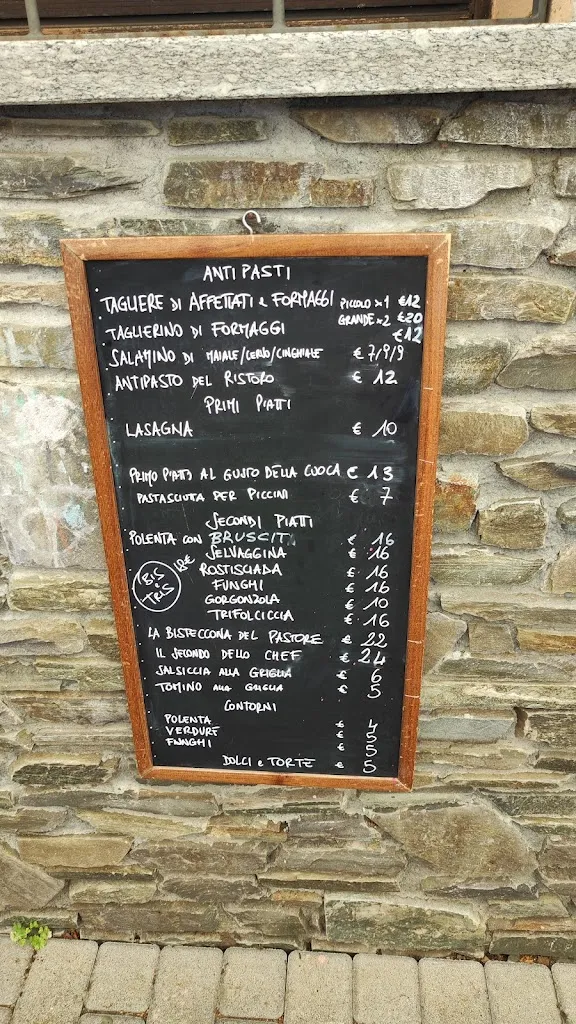 ANTIPASTI
TAGLIERE DI AFFETTATI e FORMAGGI PICCOLO x1 €12
GRANDE x2 €20
TAGLIERINO DI FORMAGGI €12
SALAMINO DI MAIALE/CERVO/CINGHIALE € 7/9/9
ANTIPASTO DEL RISTORO € 12
PRIMI PIATTI
LASAGNA € 10
PRIMO PIATTO AL GUSTO DELLA CUOCA € 13
PASTASCIUTA PER PICCINI € 7
SECONDI PIATTI
POLENTA CON BRUSCITI € 16
SELVAGGINA € 16
ROSTISCIADA € 16
FUNGHI € 16
GORGONZOLA € 10
TRIFOLCICCIA € 16
BIS e TRIS 18€
LA BISTECCONA DEL PASTORE € 22
IL SECONDO DELLO CHEF € 24
SALSICCIA ALLA GRIGLIA € 6
TOMINO ALLA GRIGLIA € 5
CONTORNI
POLENTA € 4
VERDURE € 5
FUNGHI € 5
DOLCI e TORTE € 5